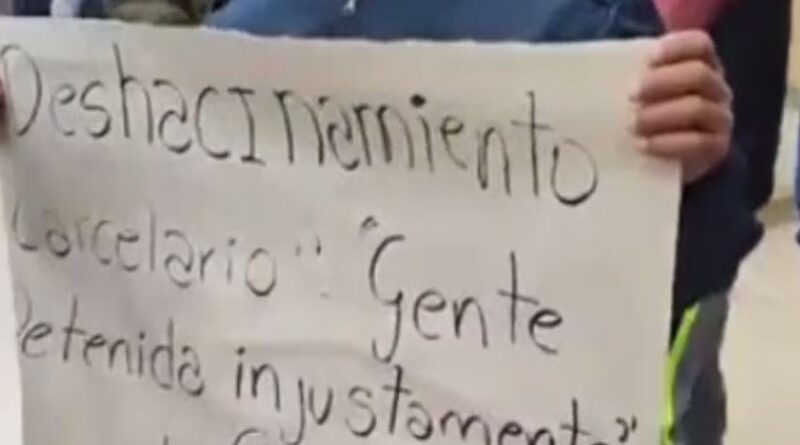 DeshacINamiento
Carcelario" "Gente
Detenida injustamente"